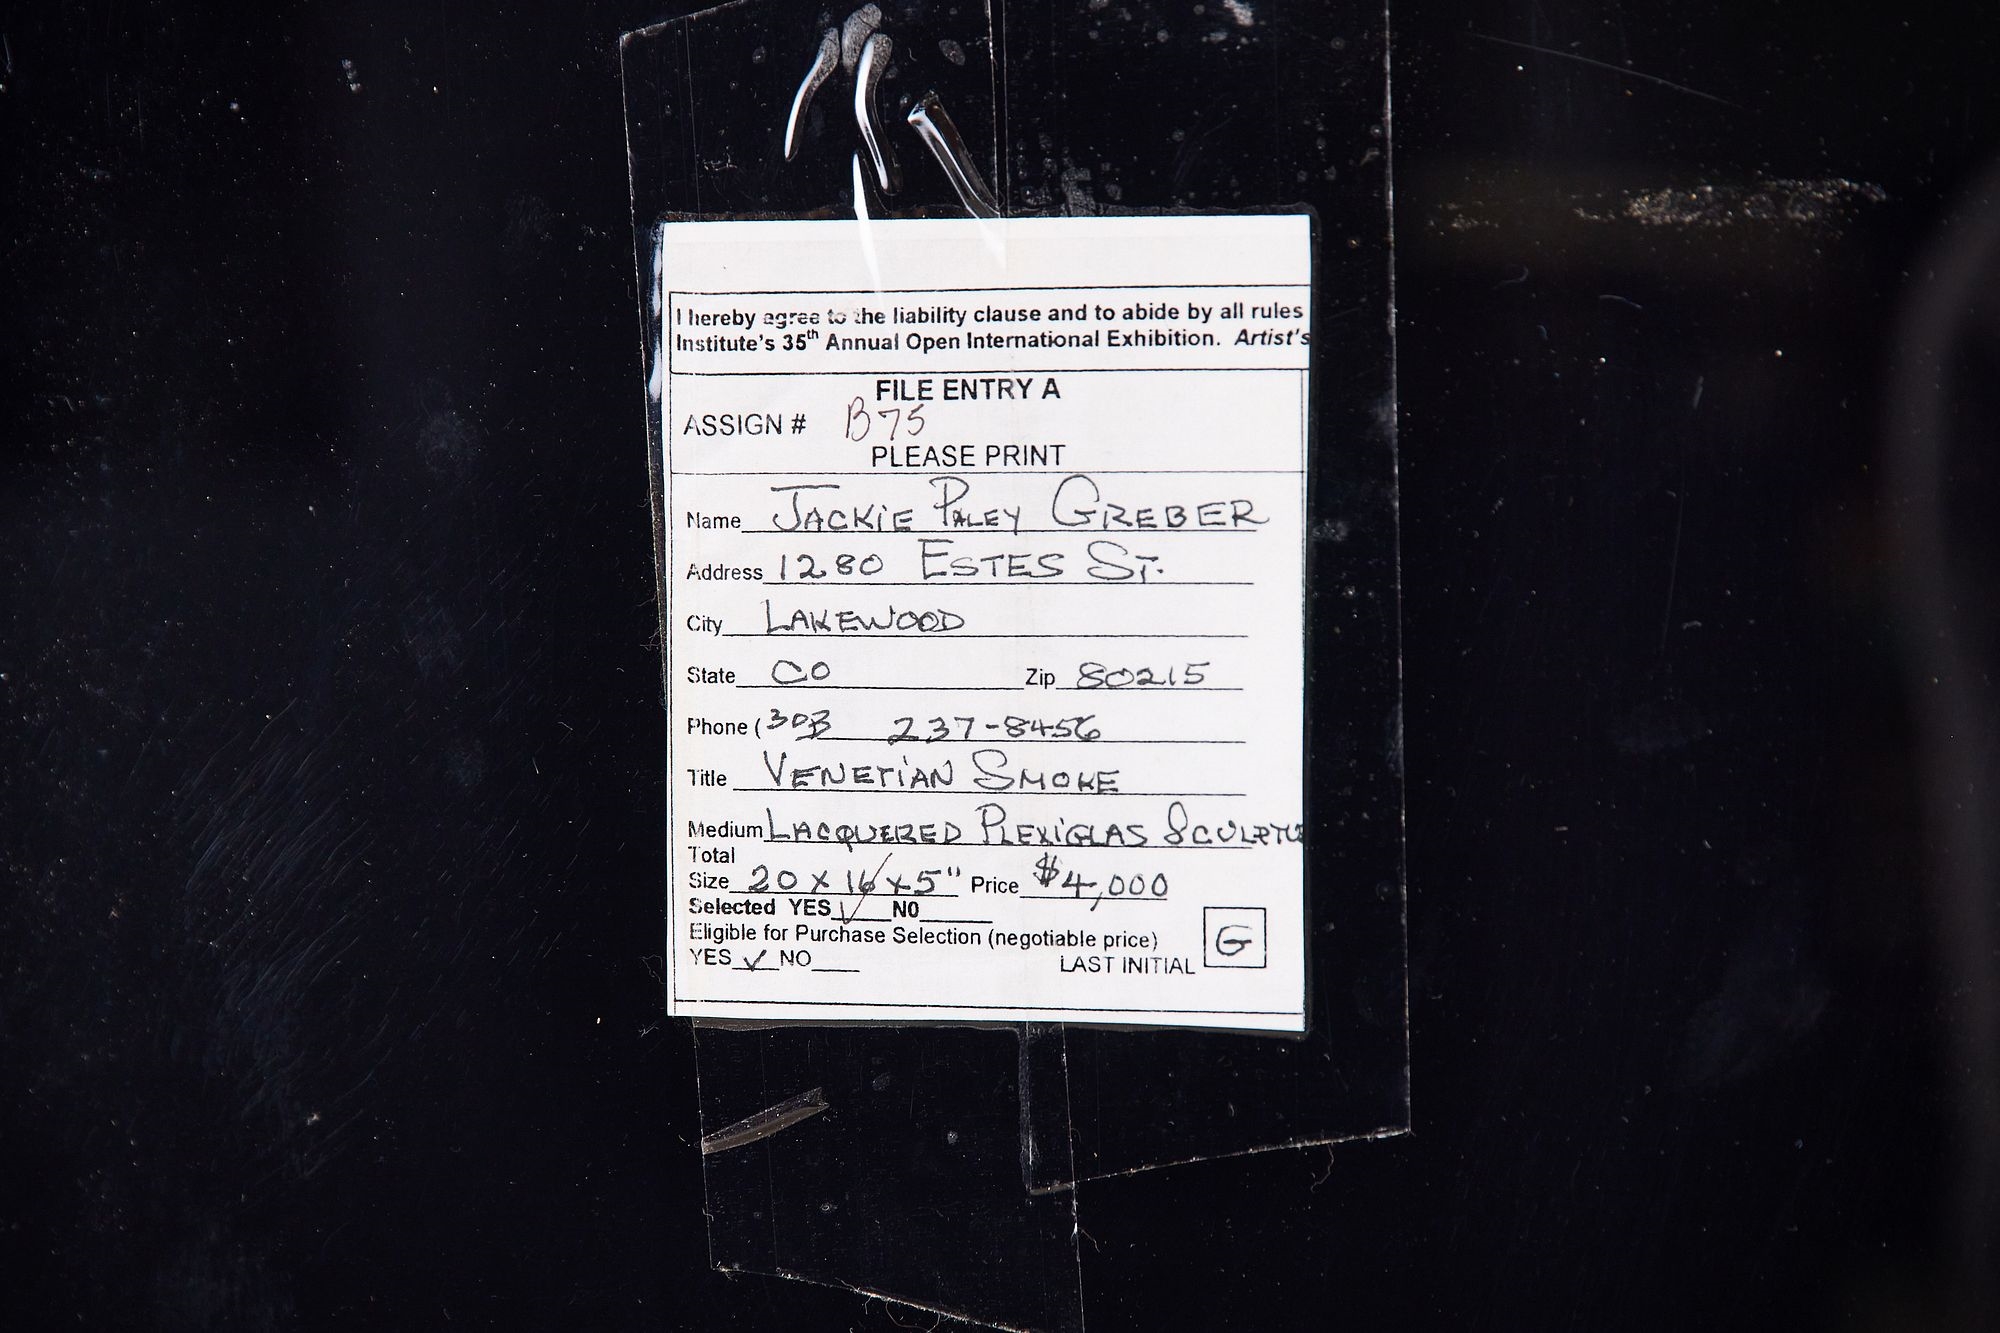 I hereby agree to the liability clause and to abide by all rules
Institute's 35th Annual Open International Exhibition. Artist's
FILE ENTRY A
ASSIGN # B75
PLEASE PRINT
Name JACKIE PALEY GREBER
Address 1280 ESTES ST.
City LAKEWOOD
State CO Zip 80215
Phone (303 237-8456
Title VENETIAN SMOKE
Medium LACQUERED PLEXIGLAS SCULPTU
Total
Size 20 x 16 x 5" Price $4,000
Selected YES ✓ NO
Eligible for Purchase Selection (negotiable price)
YES ✓ NO
LAST INITIAL G